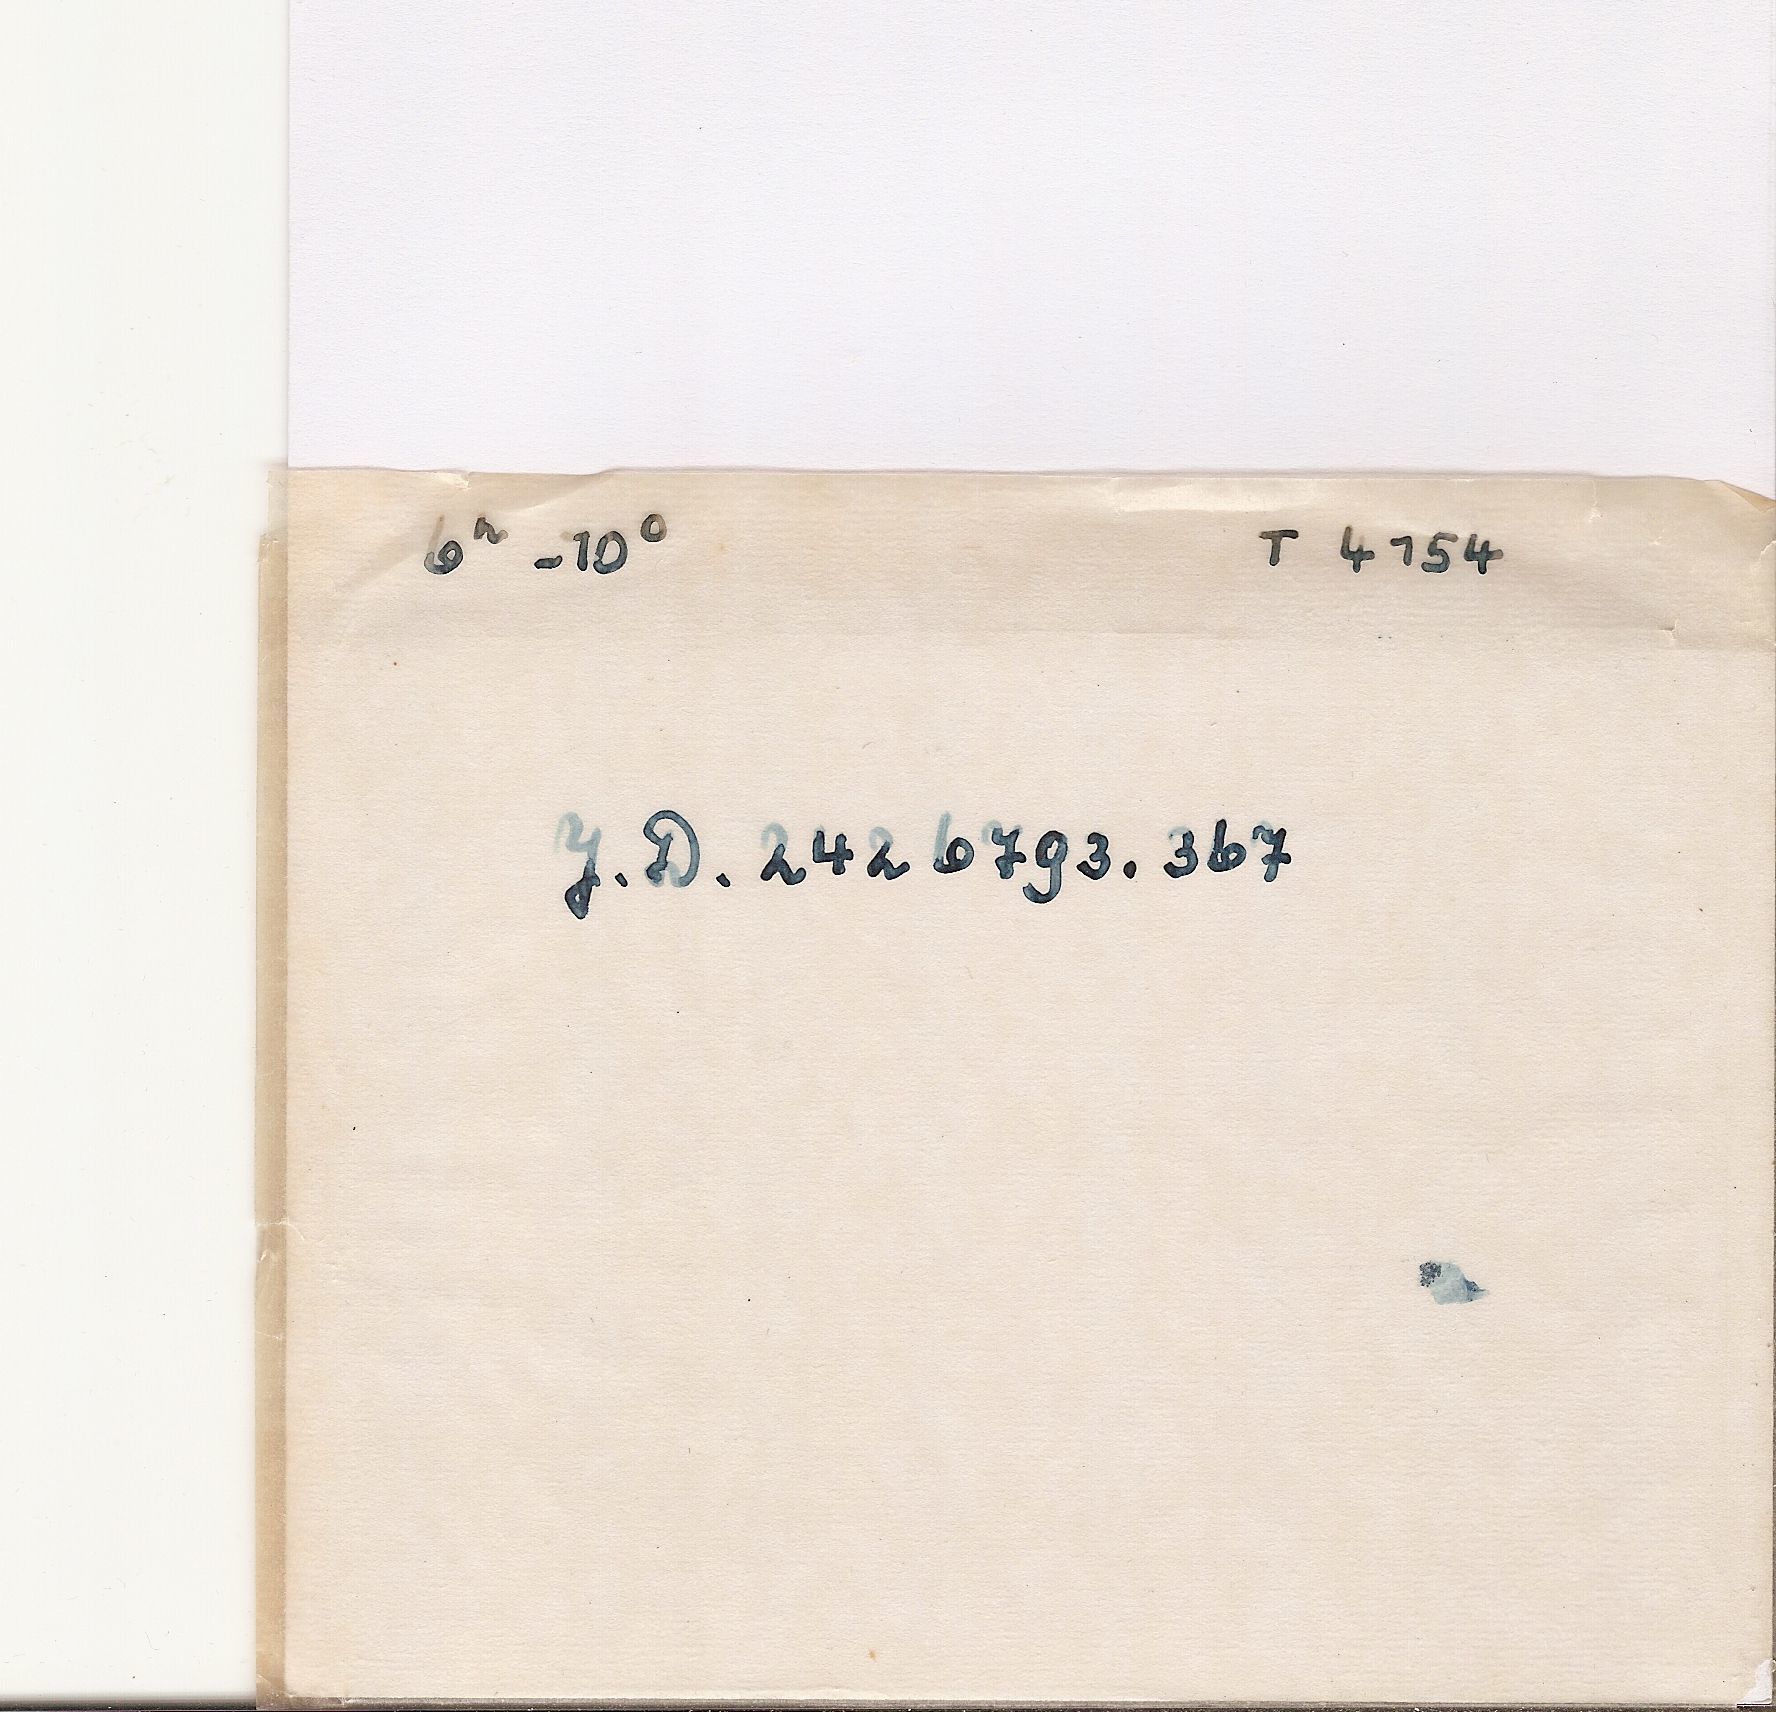 6ʰ -10⁰ T 4154
J.D. 2426793.367